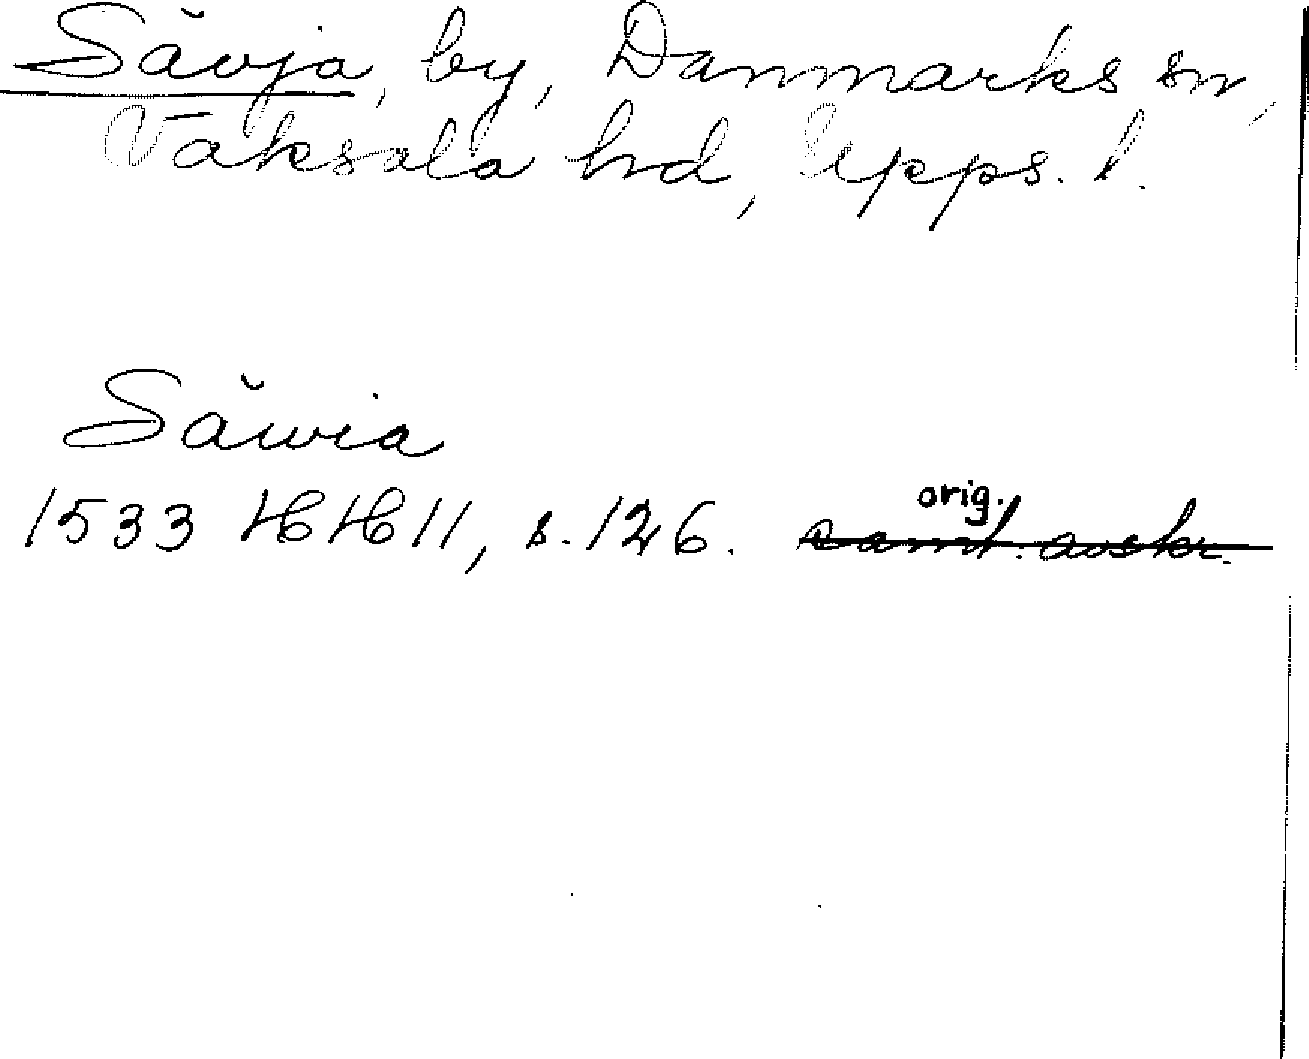 Sävja, by, Danmarks sn,
Vaksala hd, Upps. l.
Säwia
1533 HH 11, s. 126. orig. samt. avskr.